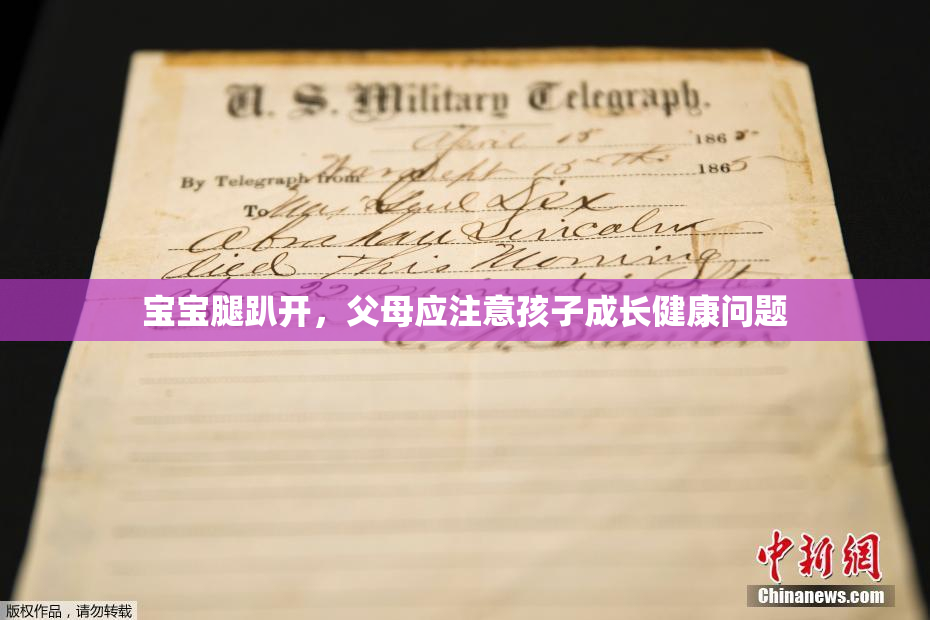 U. S. Military Telegraph.
April 15 1865
By Telegraph from War Dept 15th 1865
To Maj Genl Dix
Abraham Lincoln
died This Morning
22 minutes after
宝宝腿趴开，父母应注意孩子成长健康问题
中新网
Chinanews.com
版权作品，请勿转载